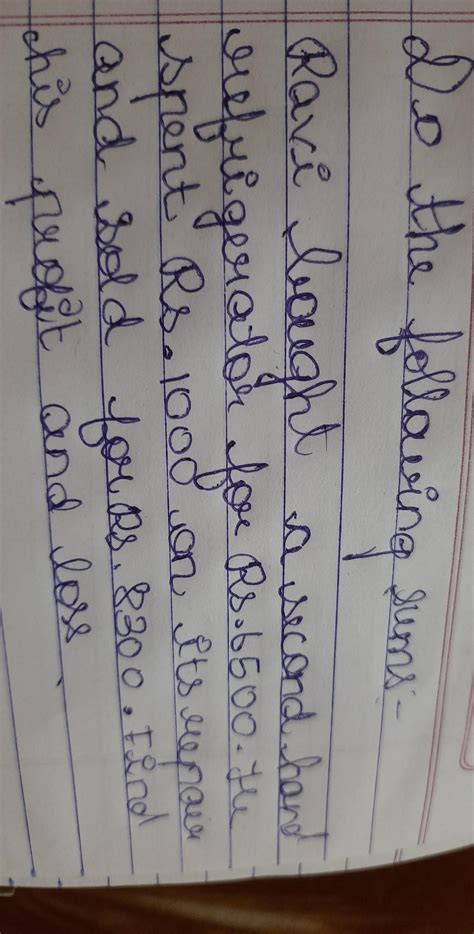 Do the following sums:-
Ravi bought a second hand
refrigerator for Rs.6500. He
spent Rs.1000 on its repair
and sold for Rs.8300. Find
his profit and loss